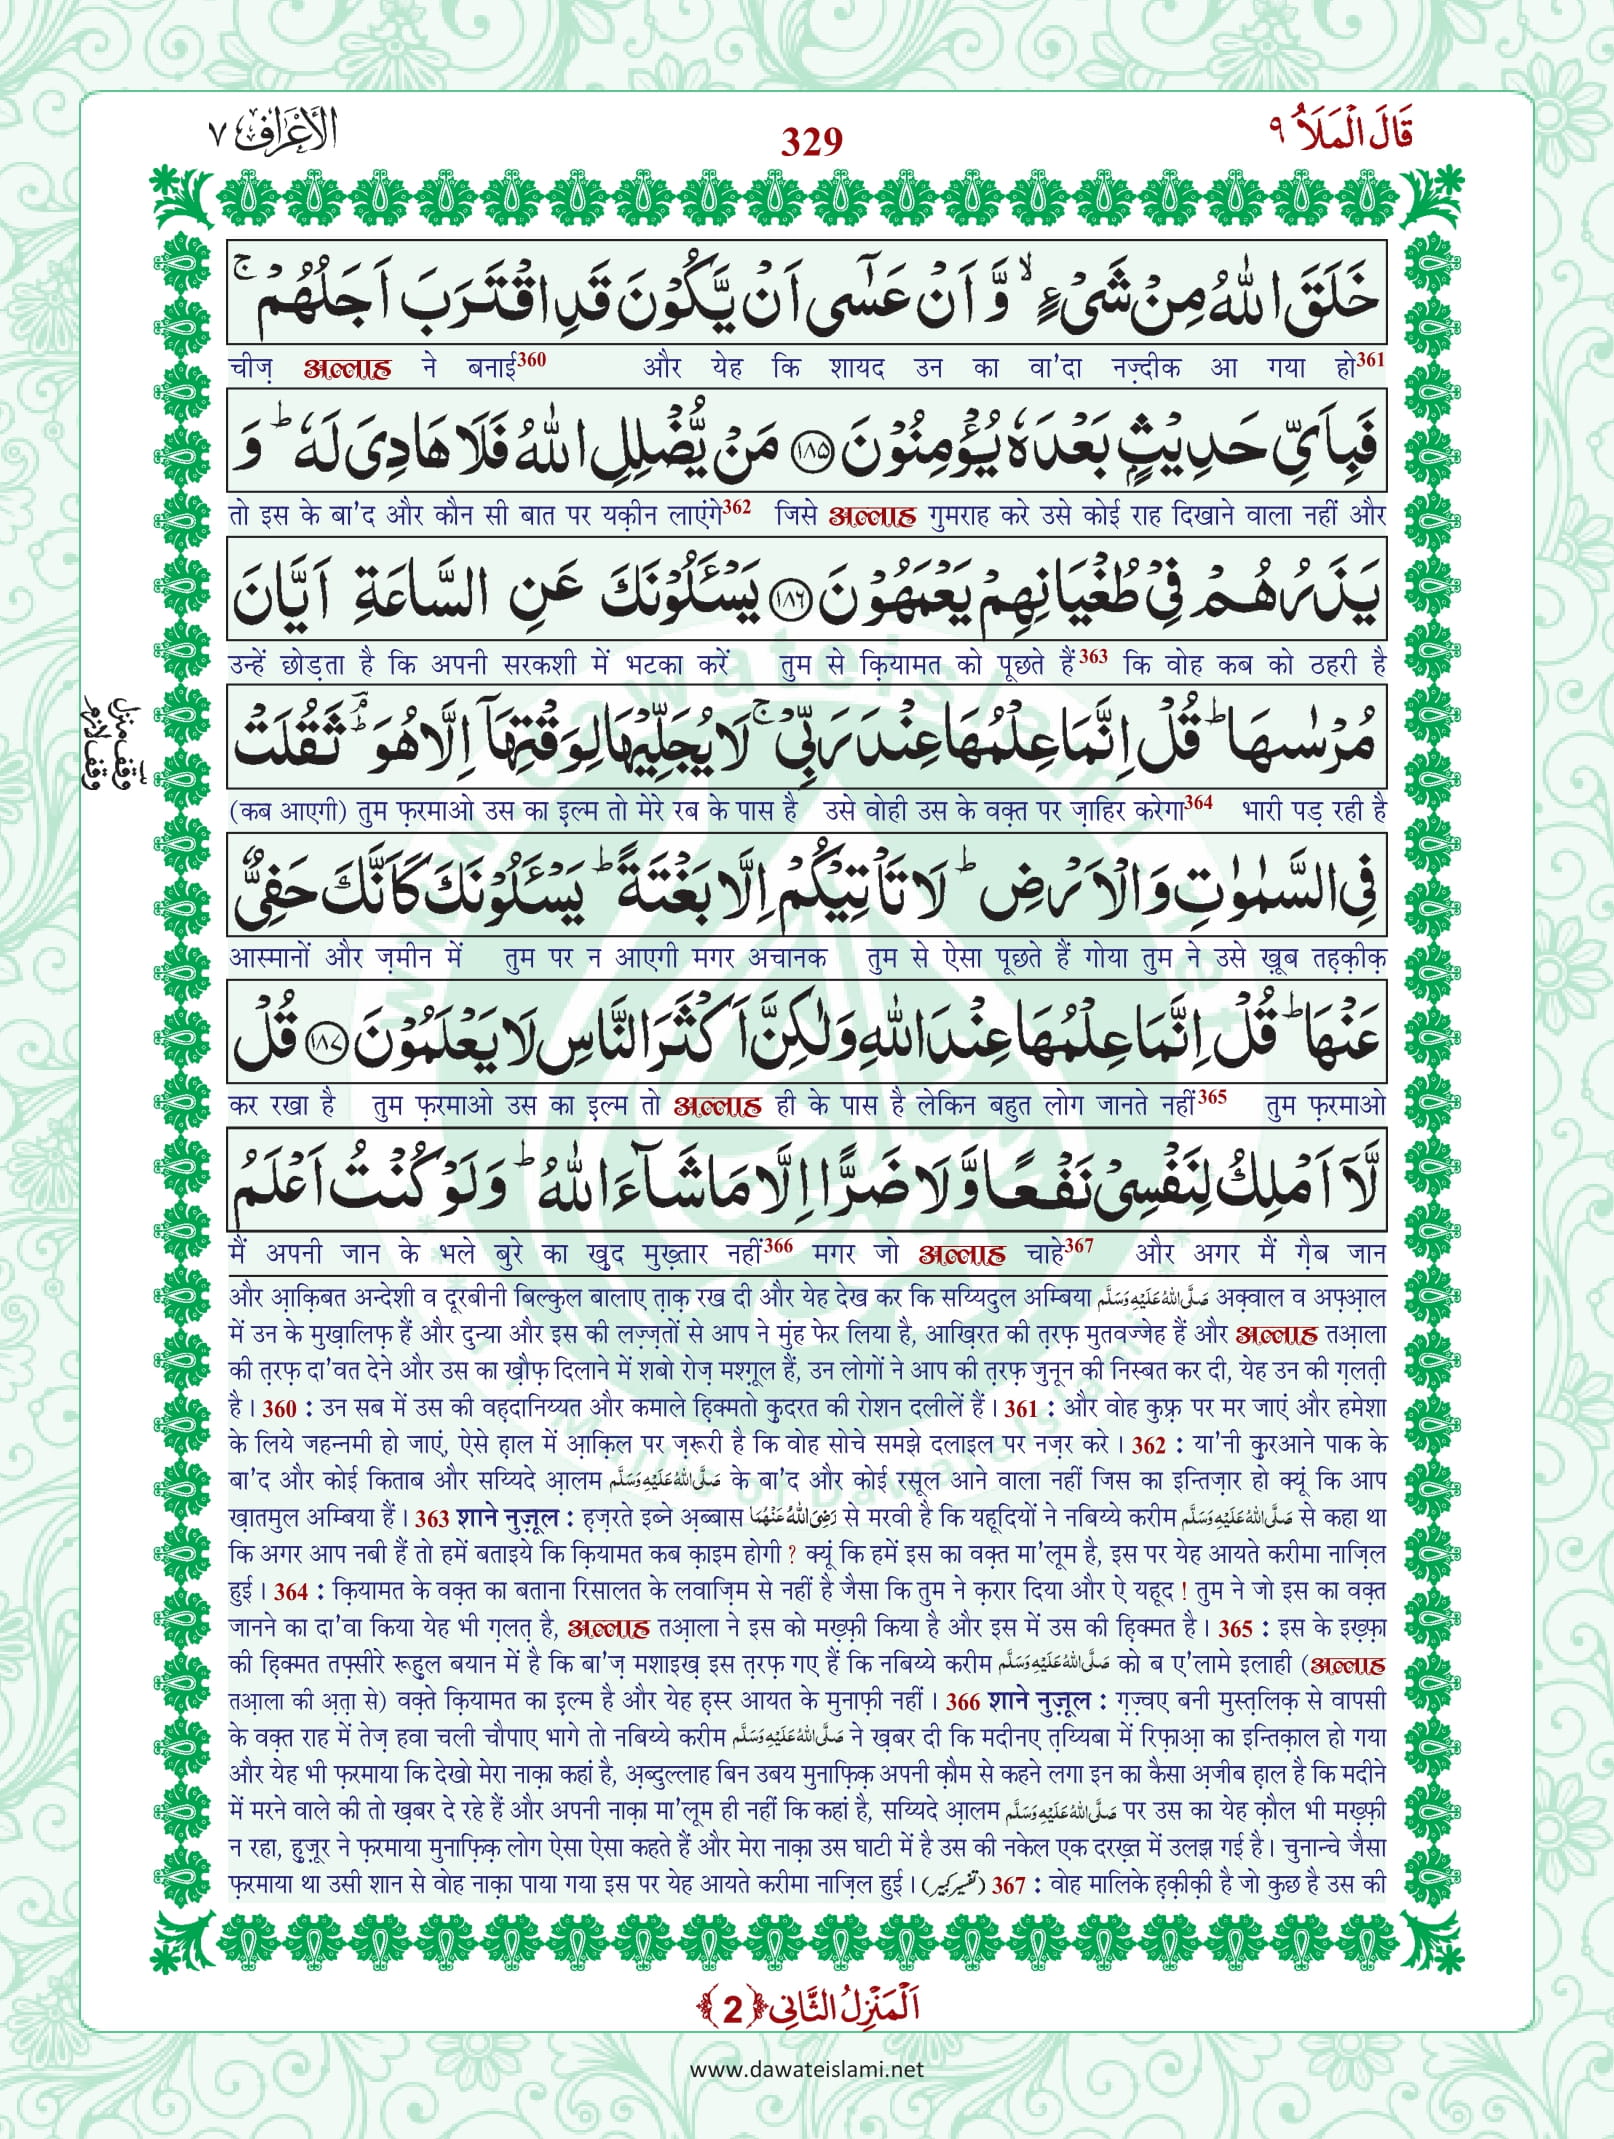 الأعراف ٧
329
قَالَ الْمَلَاُ ٩
خَلَقَ اللّٰهُ مِنْ شَیْءٍۙ وَّ اَنْ عَسٰۤى اَنْ یَّكُوْنَ قَدِ اقْتَرَبَ اَجَلُهُمْۚ
चीज़ अल्लाह ने बनाई360 और येह कि शायद उन का वा'दा नज़्दीक आ गया हो361
فَبِاَیِّ حَدِیْثٍۭ بَعْدَهٗ یُؤْمِنُوْنَ ﴿۱۸۵﴾ مَنْ یُّضْلِلِ اللّٰهُ فَلَا هَادِیَ لَهٗؕ وَ
तो इस के बा'द और कौन सी बात पर यक़ीन लाएंगे362 जिसे अल्लाह गुमराह करे उसे कोई राह दिखाने वाला नहीं और
یَذَرُهُمْ فِیْ طُغْیَانِهِمْ یَعْمَهُوْنَ ﴿۱۸۶﴾ یَسْــٴَـلُوْنَكَ عَنِ السَّاعَةِ اَیَّانَ
उन्हें छोड़ता है कि अपनी सरकशी में भटका करें तुम से क़ियामत को पूछते हैं363 कि वोह कब को ठहरी है
وقف منزل
وقف لازم
مُرْسٰىهَاؕ قُلْ اِنَّمَا عِلْمُهَا عِنْدَ رَبِّیْۚ لَا یُجَلِّیْهَا لِوَقْتِهَاۤ اِلَّا هُوَؕۘ ثَقُلَتْ
(कब आएगी) तुम फ़रमाओ उस का इल्म तो मेरे रब के पास है उसे वोही उस के वक़्त पर ज़ाहिर करेगा364 भारी पड़ रही है
فِی السَّمٰوٰتِ وَ الْاَرْضِؕ لَا تَاْتِیْكُمْ اِلَّا بَغْتَةًؕ یَسْــٴَـلُوْنَكَ كَاَنَّكَ حَفِیٌّ
आस्मानों और ज़मीन में तुम पर न आएगी मगर अचानक तुम से ऐसा पूछते हैं गोया तुम ने उसे ख़ूब तह़क़ीक़
عَنْهَاؕ قُلْ اِنَّمَا عِلْمُهَا عِنْدَ اللّٰهِ وَ لٰكِنَّ اَكْثَرَ النَّاسِ لَا یَعْلَمُوْنَ ﴿۱۸۷﴾ قُلْ
कर रखा है तुम फ़रमाओ उस का इल्म तो अल्लाह ही के पास है लेकिन बहुत लोग जानते नहीं365 तुम फ़रमाओ
لَّاۤ اَمْلِكُ لِنَفْسِیْ نَفْعًا وَّ لَا ضَرًّا اِلَّا مَا شَآءَ اللّٰهُؕ وَ لَوْ كُنْتُ اَعْلَمُ
मैं अपनी जान के भले बुरे का ख़ुद मुख़्तार नहीं366 मगर जो अल्लाह चाहे367 और अगर मैं ग़ैब जान
और आ़क़िबत अन्देशी व दूरबीनी बिल्कुल बालाए त़ाक़ रख दी और येह देख कर कि सय्यिदुल अम्बिया صَلَّى اللهُ عَلَيْهِ وَسَلَّم अक़्वाल व अफ़्आ़ल
में उन के मुख़ालिफ़ हैं और दुन्या और इस की लज़्ज़तों से आप ने मुंह फेर लिया है, आख़िरत की त़रफ़ मुतवज्जेह हैं और अल्लाह तआ़ला
की त़रफ़ दा'वत देने और उस का ख़ौफ़ दिलाने में शबो रोज़ मश्ग़ूल हैं, उन लोगों ने आप की त़रफ़ जुनून की निस्बत कर दी, येह उन की ग़लत़ी
है। 360 : उन सब में उस की वह़दानिय्यत और कमाले ह़िक्मतो क़ुदरत की रोशन दलीलें हैं। 361 : और वोह कुफ़्र पर मर जाएं और हमेशा
के लिये जहन्नमी हो जाएं, ऐसे ह़ाल में आ़क़िल पर ज़रूरी है कि वोह सोचे समझे दलाइल पर नज़र करे। 362 : या'नी क़ुरआने पाक के
बा'द और कोई किताब और सय्यिदे आ़लम صَلَّى اللهُ عَلَيْهِ وَسَلَّم के बा'द और कोई रसूल आने वाला नहीं जिस का इन्तिज़ार हो क्यूं कि आप
ख़ातमुल अम्बिया हैं। 363 शाने नुज़ूल : ह़ज़रते इब्ने अ़ब्बास رَضِىَ اللهُ عَنْهُمَا से मरवी है कि यहूदियों ने नबिय्ये करीम صَلَّى اللهُ عَلَيْهِ وَسَلَّم से कहा था
कि अगर आप नबी हैं तो हमें बताइये कि क़ियामत कब क़ाइम होगी ? क्यूं कि हमें इस का वक़्त मा'लूम है, इस पर येह आयते करीमा नाज़िल
हुई। 364 : क़ियामत के वक़्त का बताना रिसालत के लवाज़िम से नहीं है जैसा कि तुम ने क़रार दिया और ऐ यहूद ! तुम ने जो इस का वक़्त
जानने का दा'वा किया येह भी ग़लत़ है, अल्लाह तआ़ला ने इस को मख़्फ़ी किया है और इस में उस की ह़िक्मत है। 365 : इस के इख़्फ़ा
की ह़िक्मत तफ़्सीरे रूहुल बयान में है कि बा'ज़ मशाइख़ इस त़रफ़ गए हैं कि नबिय्ये करीम صَلَّى اللهُ عَلَيْهِ وَسَلَّم को ब ए'लामे इलाही (अल्लाह
तआ़ला की अ़त़ा से) वक़्ते क़ियामत का इ़ल्म है और येह ह़स्र आयत के मुनाफ़ी नहीं। 366 शाने नुज़ूल : ग़ज़्वए बनी मुस्त़लिक़ से वापसी
के वक़्त राह में तेज़ हवा चली चौपाए भागे तो नबिय्ये करीम صَلَّى اللهُ عَلَيْهِ وَسَلَّم ने ख़बर दी कि मदीनए त़य्यिबा में रिफ़ाआ़ का इन्तिक़ाल हो गया
और येह भी फ़रमाया कि देखो मेरा नाक़ा कहां है, अ़ब्दुल्लाह बिन उबय मुनाफ़िक़ अपनी क़ौम से कहने लगा इन का कैसा अ़जीब ह़ाल है कि मदीने
में मरने वाले की तो ख़बर दे रहे हैं और अपनी नाक़ा मा'लूम ही नहीं कि कहां है, सय्यिदे आ़लम صَلَّى اللهُ عَلَيْهِ وَسَلَّم पर उस का येह क़ौल भी मख़्फ़ी
न रहा, हुज़ूर ने फ़रमाया मुनाफ़िक़ लोग ऐसा ऐसा कहते हैं और मेरा नाक़ा उस घाटी में है उस की नकेल एक दरख़्त में उलझ गई है। चुनान्चे जैसा
फ़रमाया था उसी शान से वोह नाक़ा पाया गया इस पर येह आयते करीमा नाज़िल हुई। (تفسیر کبیر) 367 : वोह मालिके ह़क़ीक़ी है जो कुछ है उस की
اَلْمَنْزِلُ الثَّانِی ﴿2﴾
www.dawateislami.net